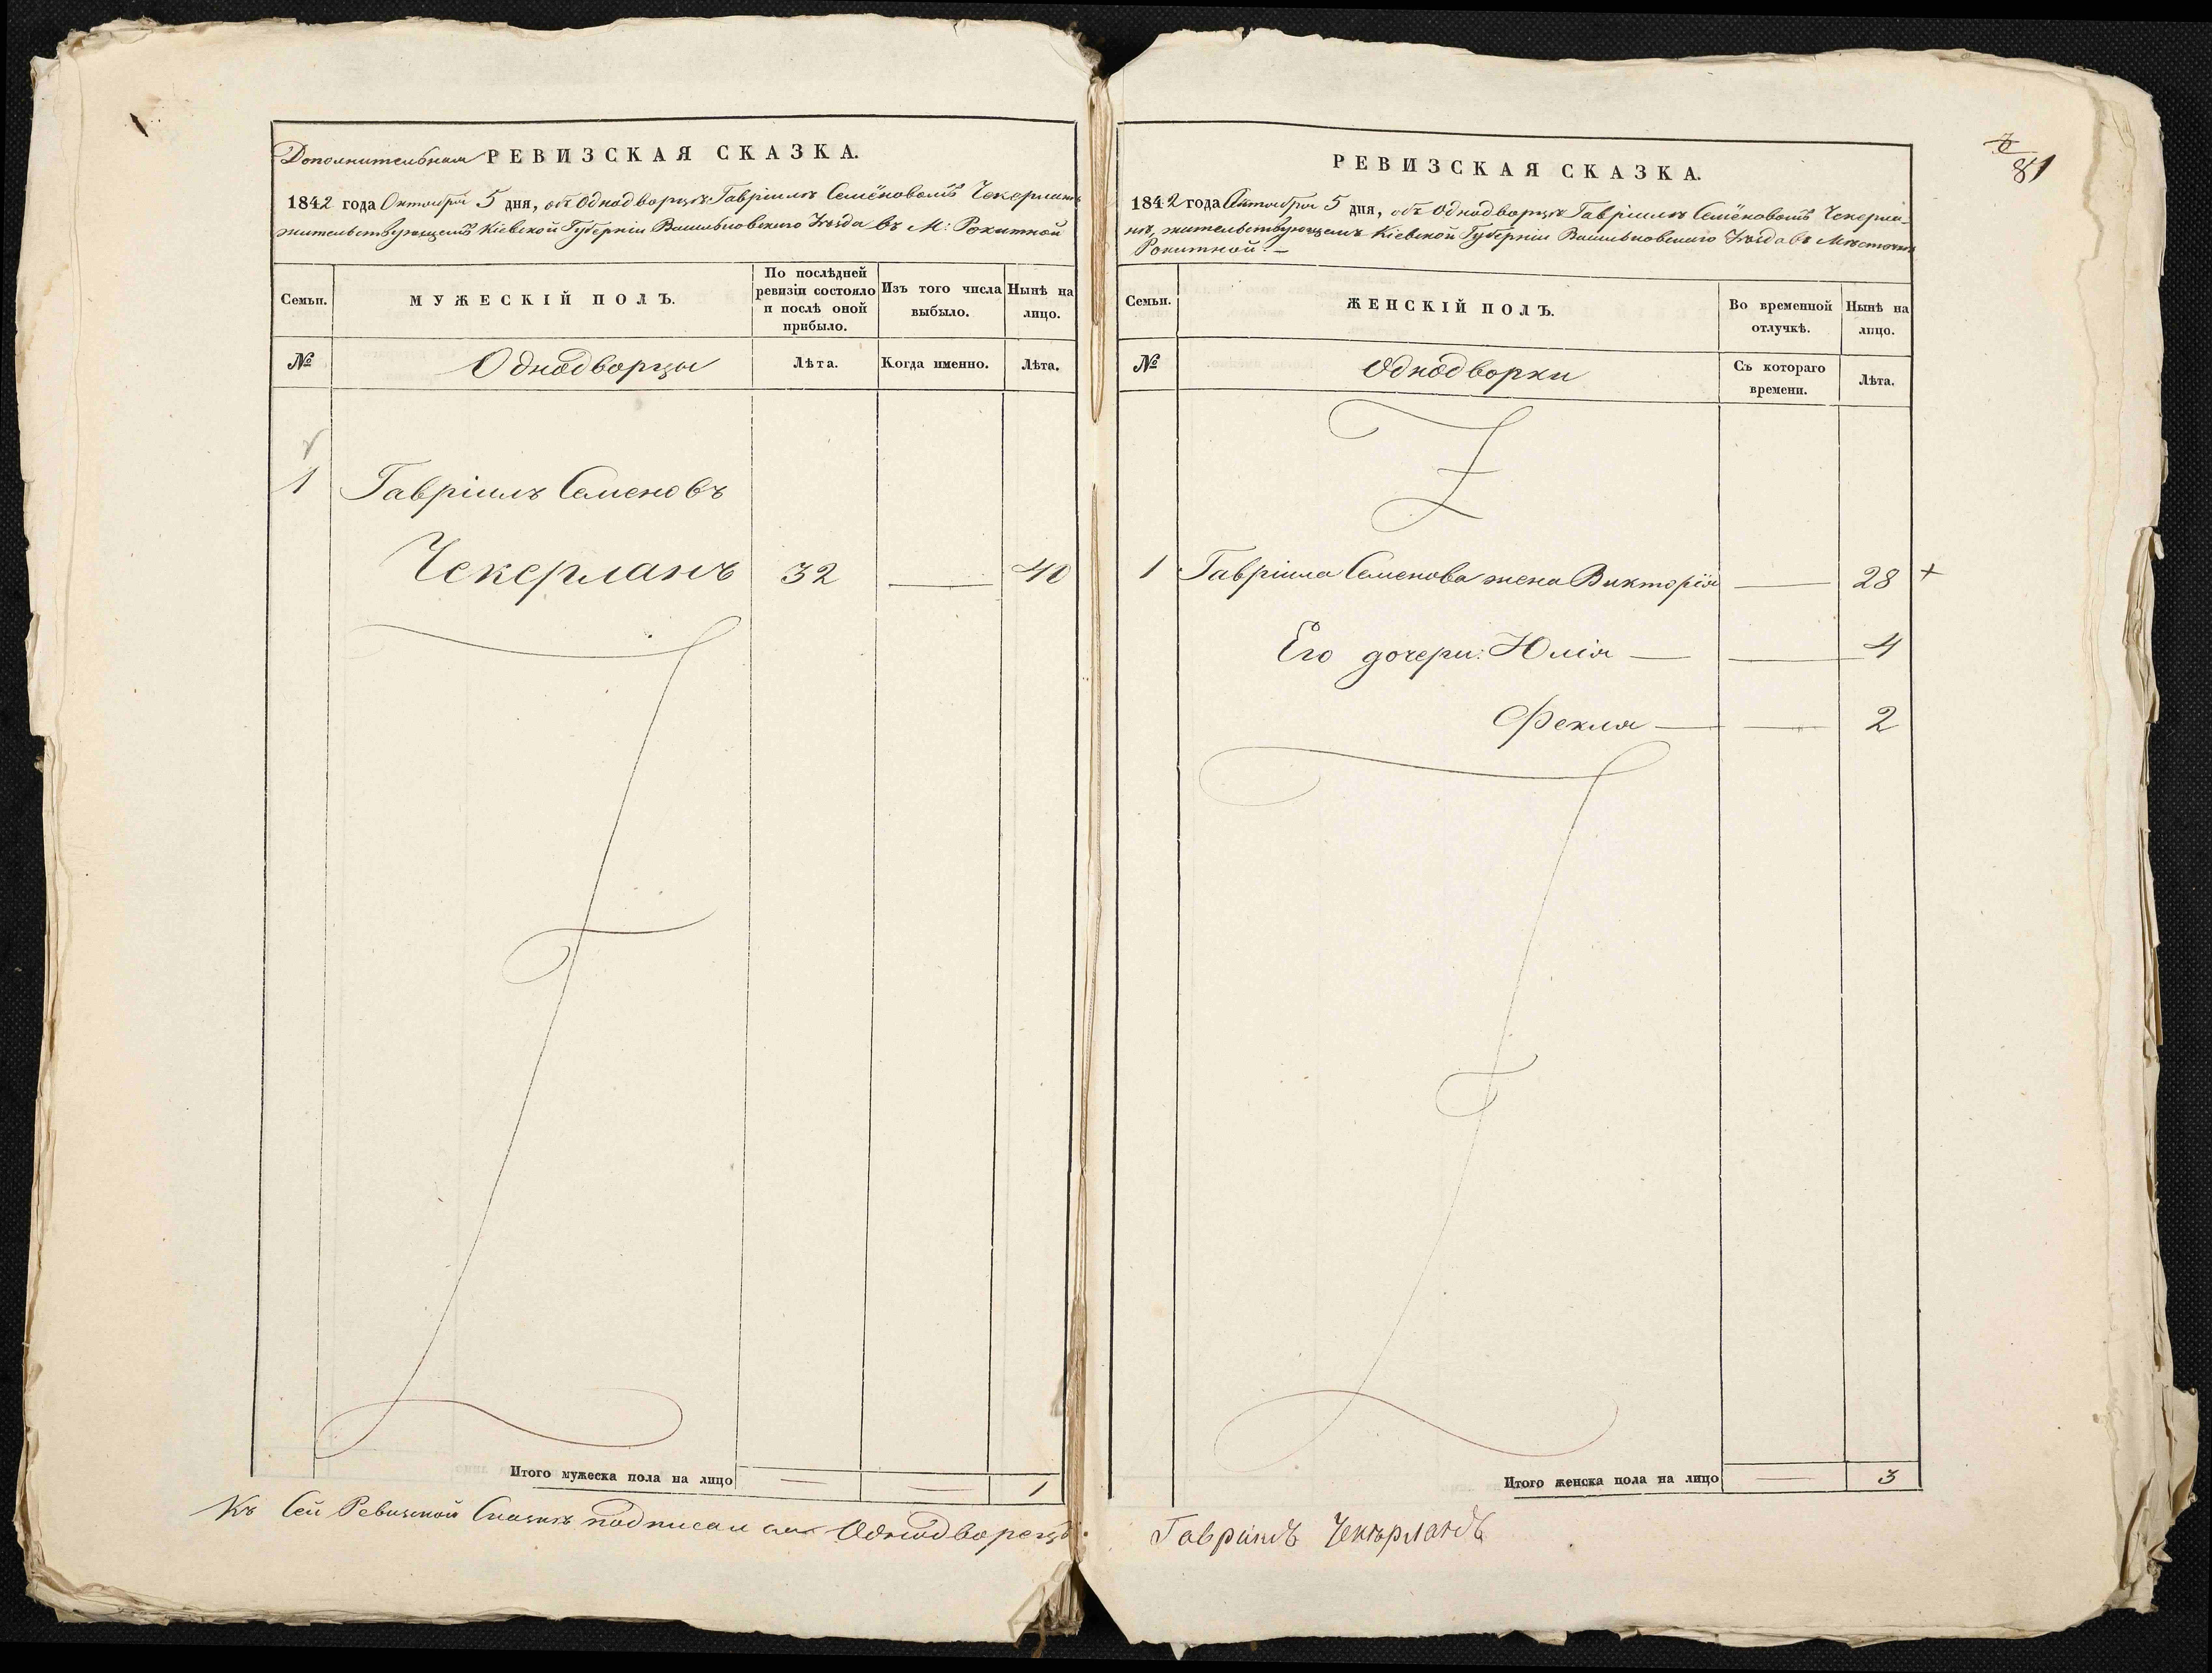 Дополнительная РЕВИЗСКАЯ СКАЗКА.
1842 года Октября 5 дня, объ Однодворцѣ Гавріилѣ Семёновомъ Чекерланѣ
жительствующемъ Кіевской Губерніи Васильковскаго Уѣзда въ М: Рокитной
Семьи.
МУЖЕСКІЙ ПОЛЪ.
По послѣдней
ревизіи состояло
и послѣ оной
прибыло.
Изъ того числа
выбыло.
Нынѣ на
лицо.
№
Однодворцы
Лѣта.
Когда именно.
Лѣта.
1 Гавріилъ Семеновъ
Чекерланъ 32 — 40
Итого мужеска пола на лицо — — 1
Къ Сей Ревизской Сказкѣ подписался Однодворецъ:
81
РЕВИЗСКАЯ СКАЗКА.
1842 года Октября 5 дня, объ Однодворцѣ Гавріилѣ Семёновомъ Чекерла-
нѣ, жительствующемъ Кіевской Губерніи Васильковскаго Уѣзда въ Мѣстечкѣ
Рокитной. —
Семьи.
ЖЕНСКІЙ ПОЛЪ.
Во временной
отлучкѣ.
Нынѣ на
лицо.
№
Однодворки
Съ котораго
времени.
Лѣта.
1 Гавріила Семенова жена Викторія — 28 +
Его дочери: Юлія — — 4
Фекля — — 2
Итого женска пола на лицо — 3
Гавріилъ Чекѣрланъ